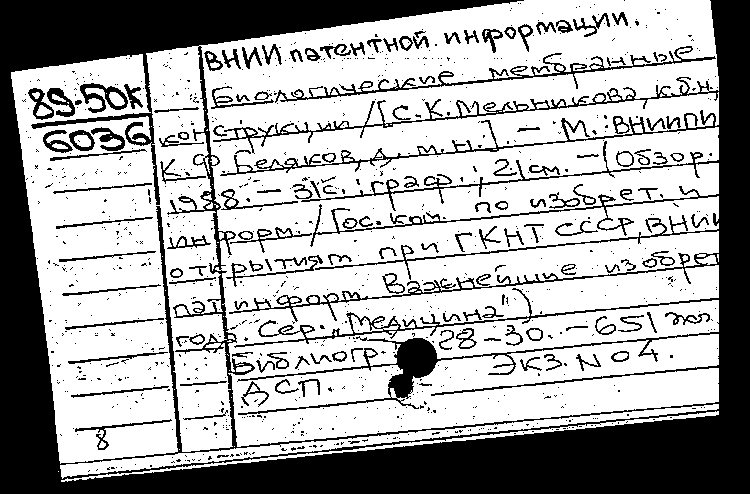 ВНИИ патентной информации.
89-50К
6036
Биологические мембранные
конструкции / [С.К. Мельникова, к.б.н.,
К.Ф. Беляков, д.м.н.]. – М.: ВНИИПИ
1988. – 31с. : граф. ; 21см. – (Обзор.
информ. / Гос. ком. по изобрет. и
открытиям при ГКНТ СССР, ВНИИ
пат. информ. Важнейшие изобрет
года. Сер. „Медицина")
Библиогр. 28-30. – 651 экз.
ДСП. Экз. N 04.
8